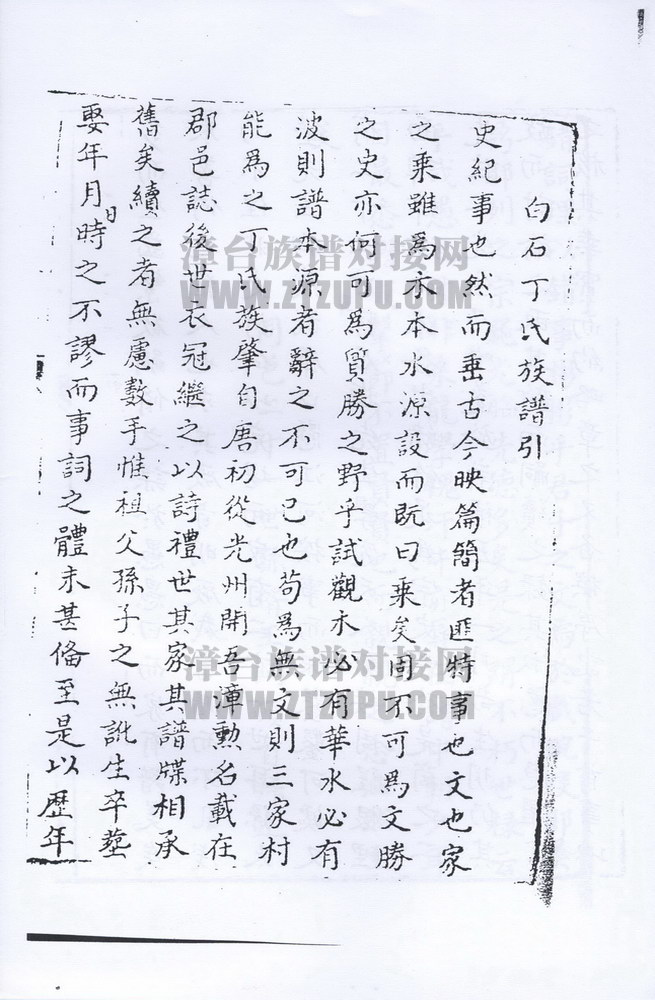 白石丁氏族譜引
史紀事也然而垂古今映篇簡者匪特事也文也家
之乘雖為木本水源設而既曰乘矣固不可為文勝
之史亦何可為質勝之野乎試觀木必有華水必有
波則譜本源者辭之不可已也苟為無文則三家村
能為之丁氏族肇自唐初從光州開吾漳勲名載在
郡邑誌後世衣冠繼之以詩禮世其家其譜牒相承
舊矣續之者無慮數手惟祖父孫子之無訛生卒塟
娶年月日時之不謬而事詞之體未甚俻至是以歷年
漳台族谱对接网
WWW.ZTZUPU.COM
漳台族谱对接网
WWW.ZTZUPU.COM